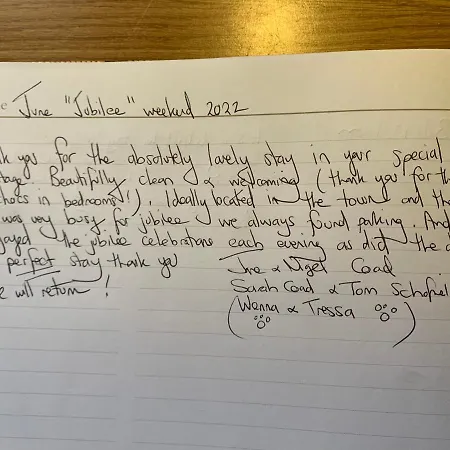 e June "Jubilee" weekend 2022
k you for the absolutely lovely stay in your special
tage. Beautifully clean & welcoming (thank you for th
hocs in bedrooms!). Ideally located in the town and th
was very busy for jubilee we always found parking. And
oyed the jubilee celebrations each evening as did the d
perfect stay thank you
e will return!
June & Nigel Coad
Sarah Coad & Tom Schofiel
(Wenna & Tressa)